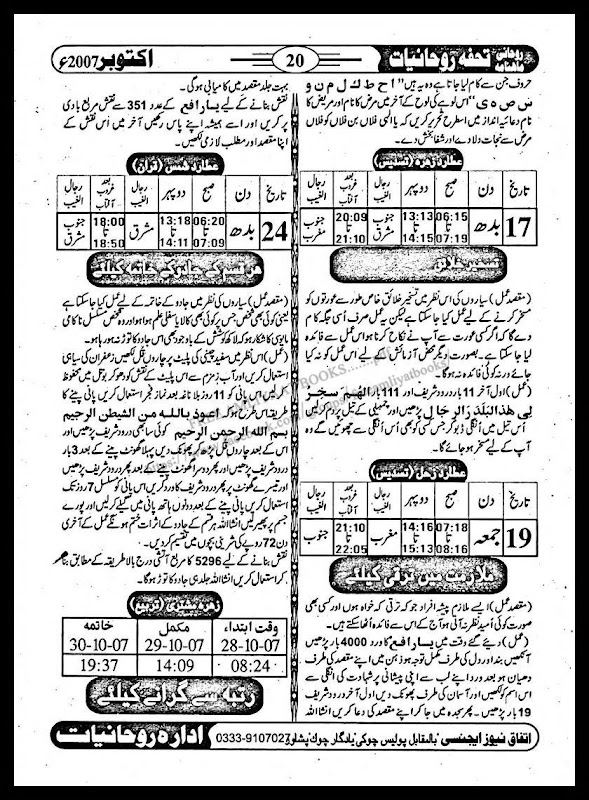 روحانی ماہنامہ تحفہ روحانیات
20
اکتوبر 2007ء
حروف جن سے کام لیا جاتا ہے وہ یہ ہیں "ا ح ط ک ل م ن و
س ص ہ ی" اس لوہے کی لوح کے آخر میں مرض کا نام اور مریض کا
نام دعائیہ انداز میں اسطرح تحریر کریں کہ یا الٰہی فلاں بن فلاں کو فلاں
مرض سے نجات دلا دے اور شفا بخش دے۔
عطارد زہرہ (تسدیس)
تاریخ دن صبح دوپہر رجال الغیب بعد غروب آفتاب رجال الغیب
17 بدھ 06:15 تا 07:19 13:13 تا 14:15 جنوب مشرق 20:09 تا 21:10 جنوب مغرب
تسخیر خلائق
(مقصد عمل) سیاروں کی اس نظر میں تسخیر خلائق خاص طور سے عورتوں کو
مسخر کرنے کے لیے عمل کیا جا سکتا ہے لیکن یہ عمل صرف اسی جگہ کام
دے گا کہ اگر کسی عورت سے آپ نے نکاح کرنا ہو اس عمل سے فائدہ
اٹھایا جا سکتا ہے۔ بصورت دیگر محض آزمائش کے لیے اس عمل کو نہ کیا
جائے ورنہ کوئی فائدہ نہ ہوگا۔
(عمل) اول آخر 11 بار درود شریف اور 111 بار الھم سخر
لی ھذا البلد الرجال پڑھیں اور چنبیلی کے تیل پر دم کر لیں
اس تیل میں انگلی ڈبو کر جس کسی کو بھی اُس انگلی سے چھوئیں گے وہ
آپ کے لیے مسخر ہو جائے گا۔
عطارد زحل (تسدیس)
تاریخ دن صبح دوپہر رجال الغیب بعد غروب آفتاب رجال الغیب
19 جمعہ 07:18 تا 08:16 14:16 تا 15:13 مغرب 21:10 تا 22:05 جنوب
ملازمت میں ترقی کیلئے
(مقصد عمل) ایسے ملازم پیشہ افراد جو کہ ترقی کے خواہ ہوں اور کسی بھی
صورت کوئی اُمید نظر نہ آئی ہو آج کے اس سے فائدہ اُٹھا سکتے ہیں۔
(عمل) دیئے گئے وقت میں یا رافع کا ورد 4000 بار پڑھیں
آنکھیں بند اور دل کی طرف مکمل توجہ ہو ذہن میں اپنے مقصد کی طرف
دھیان ہو بعد ورد اپنے لب سے اپنی پیشانی پر شہادت کی انگلی سے
اس اسم کو لکھیں اور آسمان کی طرف پھونک دیں اول آخر درود شریف
19 بار پڑھیں۔ پھر سجدہ میں جا کر اپنے مقصد کی دعا کریں انشاء اللہ
بہت جلد مقصد میں کامیابی ہو گی۔
نقش بنانے کے لیے یا رافع کے عدد 351 سے نقش مربع بادی
پُر کریں اور اسے ہمیشہ اپنے پاس رکھیں آخر میں اُس نقش کے
اپنا مقصد اور مطلب لازمی لکھیں۔
عطارد شمس (قران)
تاریخ دن صبح دوپہر رجال الغیب بعد غروب آفتاب رجال الغیب
24 بدھ 06:20 تا 07:09 13:18 تا 14:11 مشرق 18:00 تا 18:50 جنوب مشرق
ہر قسم کے جادو کے خاتمہ کیلئے
(مقصد عمل) سیاروں کی نظر میں جادو کے خاتمہ کے لیے عمل کیا جا سکتا ہے
یعنی کوئی بھی شخص جس پر کوئی بھی کالا یا سفلی علم ہوا ہو وہ شخص مسلسل ناکامی
مایوسی کا شکار ہو لاکھ کوشش کے باوجود اسی جادو کا توڑ نہ ہو رہا ہو۔
(عمل) اس نظر میں سفید چینی کی پلیٹ پر چاروں قُل لکھیں زعفران کی سیاہی
استعمال کریں اور آب زمزم سے اس پلیٹ کے نقش کو دھو کر بوتل میں محفوظ
کر لیں اس پانی کو 11 روز بلا ناغہ نماز فجر استعمال کریں پانی پینے کا
طریقہ اسطرح ہو گا کہ اعوذ باللہ من الشیطن الرجیم
بسم اللہ الرحمن الرحیم کوئی سا بھی درود شریف پڑھیں اور
اس کے بعد چاروں قُل پڑھ کر پھونک دیں پہلا گھونٹ پینے کے بعد 3 بار
درود شریف پڑھیں اور دوسرا گھونٹ پینے کے بعد پھر درود شریف پڑھیں
اور تیسرے گھونٹ پر پھر درود شریف کا ورد کریں اس پانی کو مسلسل 7 روز تک
استعمال کریں پانی پینے کے بعد دونوں ہاتھ پانی میں گیلے کر لیں اور پورے
جسم پر پھیر لیں انشاء اللہ ہر قسم کے جادو کے اثرات ختم ہونگے عمل کے آخری
دن 72 روپے کی شرینی بچوں میں تقسیم کر دیں۔
نقش بنانے کے لیے 5296 کا مربع آتشی درج بالا طریقہ کے مطابق بنا
کر استعمال کریں انشاء اللہ جلد ہی جادو کا توڑ ہو گا۔
زہرہ مشتری (تربیع)
وقت ابتداء مکمل خاتمہ
28-10-07 29-10-07 30-10-07
08:24 14:09 19:37
رتبہ سے گرانے کیلئے
اتفاق نیوز ایجنسی بالمقابل پولیس چوکی یادگار چوک پشاور 0333-9107027
ادارہ روحانیات